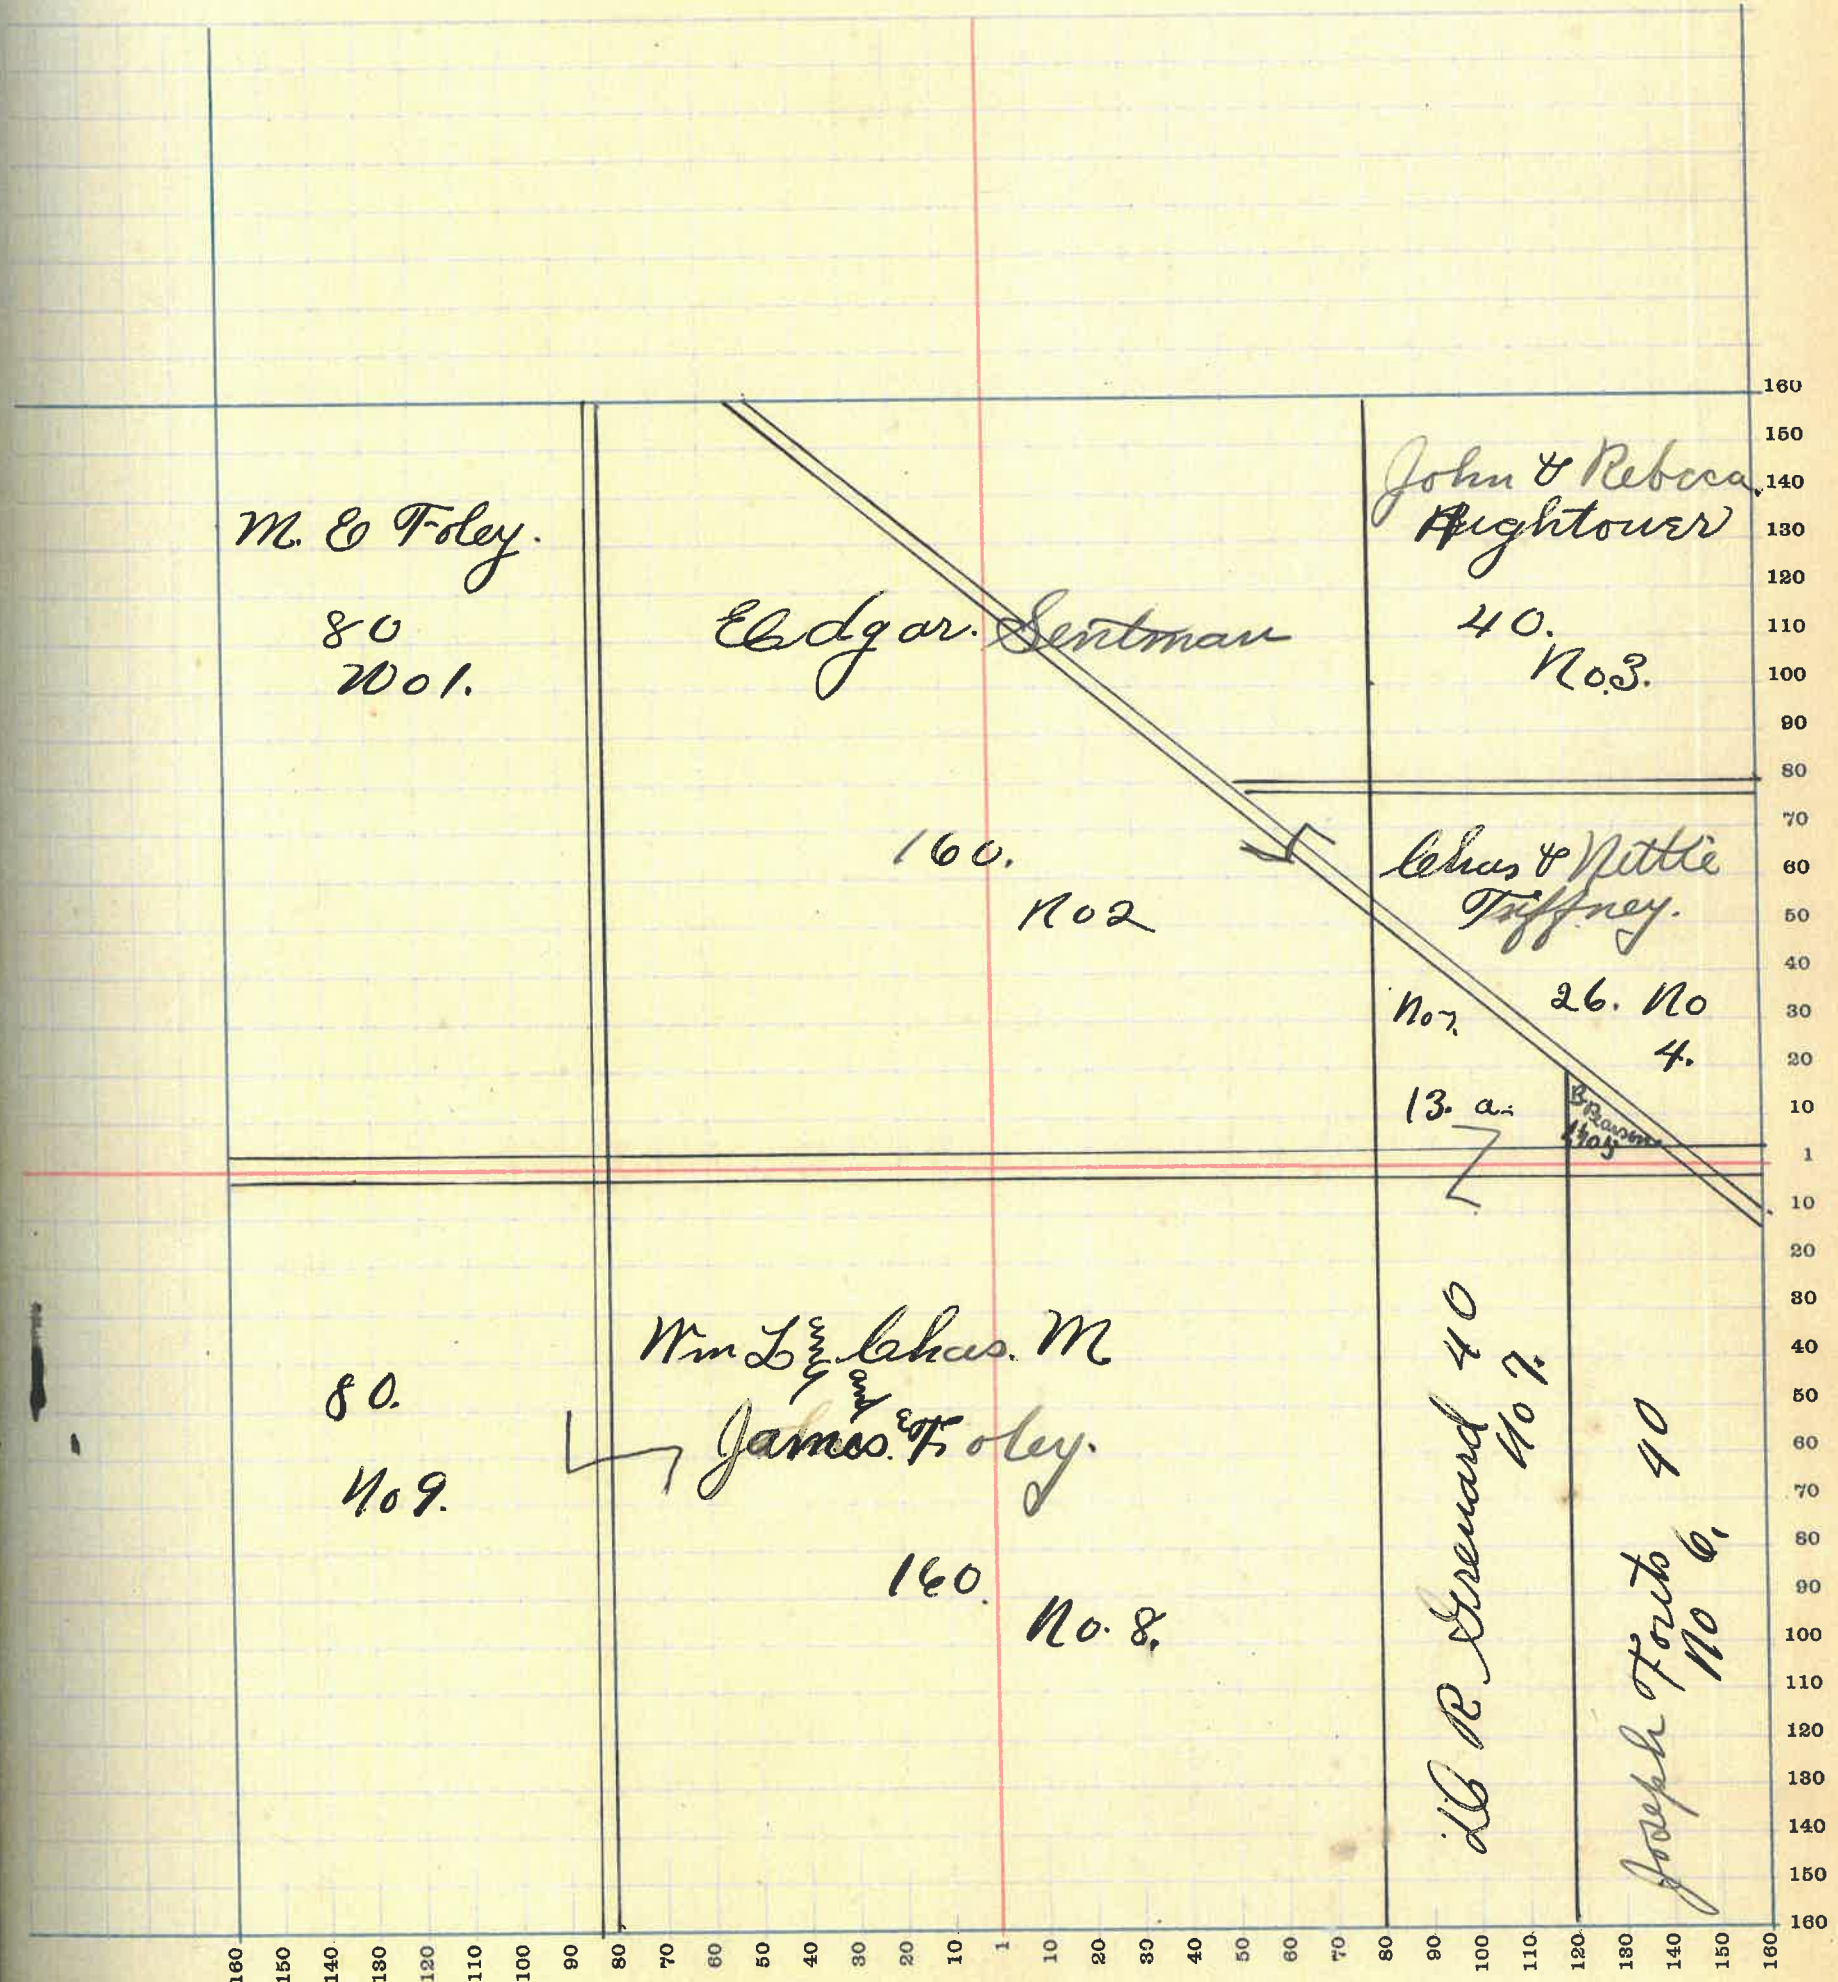 M. E Foley.
80
No 1.
Edgar. Sentman
160.
No 2
John & Rebeca
Hightower
40.
No. 3.
Chas & Nettie
Tiffney.
26. No
4.
No 7.
13. a.
B Pearson
Wm L Chas. M
and
James Foley.
160.
No. 8.
80.
No 9.
R Grenard 40
No 7.
Joseph Fouts 40
No 6.
160
150
140
130
120
110
100
90
80
70
60
50
40
30
20
10
1
10
20
30
40
50
60
70
80
90
100
110
120
130
140
150
160
160 150 140 130 120 110 100 90 80 70 60 50 40 30 20 10 1 10 20 30 40 50 60 70 80 90 100 110 120 130 140 150 160